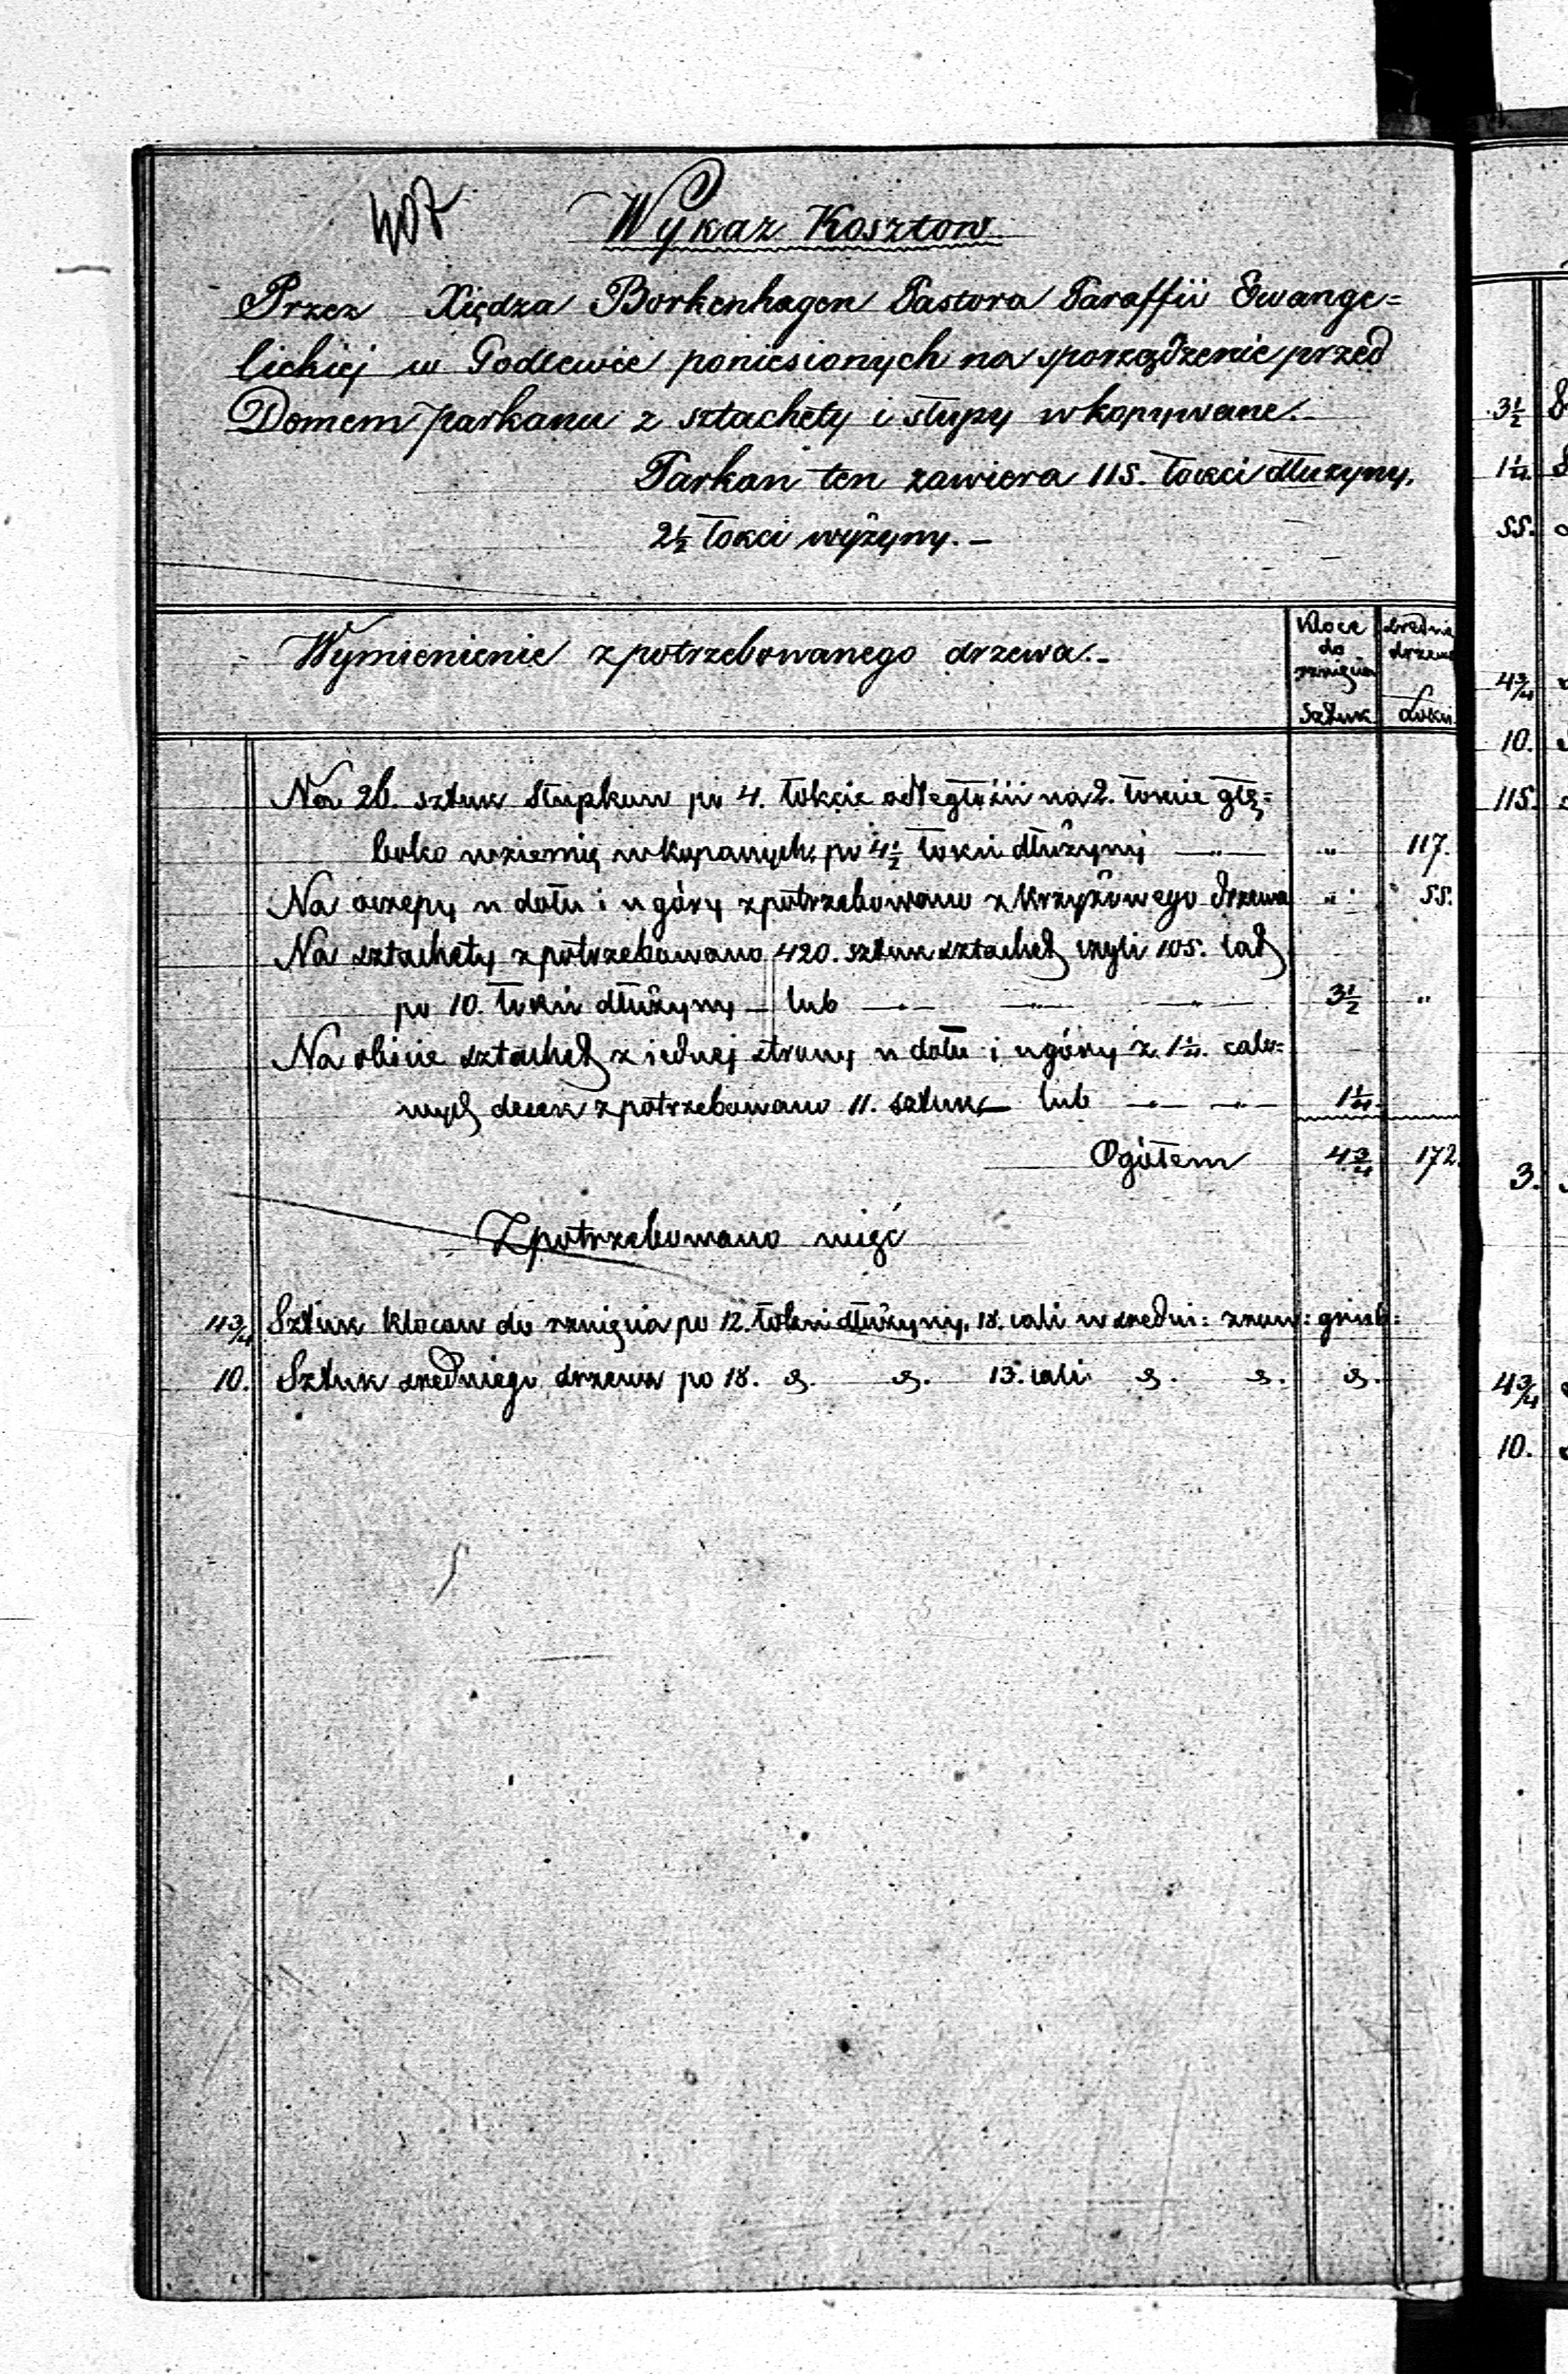 407
Wykaz Kosztow
Przez Xiędza Borkenhagen Pastora Paraffii Ewange=
lickiej w Godlewie poniesionych na sporządzenie przed
Domem parkanu z sztachety i słupy wkopywane.
Parkan ten zawiera 115. łokci dłużyny,
2½ łokci wyżyny. –
Wymienienie zpotrzebowanego drzewa. –
Kloce do rznięcia
Sztuk
średnie drzewo
Łokci
Na 26. sztuk słupkuw po 4. łokcie odległości na 2. łokcie głę=
boko w ziemię wkopanych, po 4½ łokci dłużyny — " — " 117.
Na oczepy u dołu i u góry zpotrzebowano z krzyżowego drzewa " 55.
Na sztachety zpotrzebowano 420. sztuk sztachet czyli 105. łat
po 10. łokci dłużyny — lub — " — — " — — " — 3½ "
Na obicie sztachet z jednej strony u dołu i u góry z 1¼. calo=
wych decek zpotrzebowano 11. sztuk — lub — " — — " — 1¼.
Ogółem 4¾ 172.
Zpotrzebowano więc
4¾ Sztuk klocow do rznięcia po 12. łokci dłużyny, 18. cali w średni: grub:
10. Sztuk średniego drzewa po 18. d. d. 13. cali d. d. d.
3½
1¼.
55.
4¾
10.
115.
3.
4¾
10.